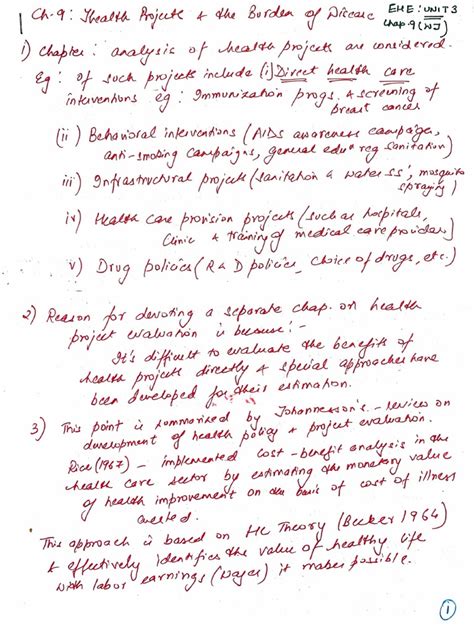 Ch-9: Health Projects & the Burden of Disease
EHE: UNIT 3
Chap-9 (WJ)
1) Chapter: analysis of health projects are considered.
Eg: of such projects include (i) Direct health care
interventions eg: Immunization progs. & screening of
breast cancer
(ii) Behavioral interventions (AIDs awareness campaign,
anti-smoking campaigns, general edun reg sanitation)
iii) Infrastructural projects (sanitation & water ss', mosquito
spraying)
iv) Health care provision projects (such as hospitals,
clinic & training of medical care providers)
v) Drug policies (R & D policies, choice of drugs, etc.)
2) Reason for devoting a separate chap. on health
project evaluation is because:-
It's difficult to evaluate the benefits of
health projects directly & special approaches have
been developed for their estimation.
3) This point is summarized by Johannesson's - reviews on
development of health policy & project evaluation.
Rice (1967) - implemented cost-benefit analysis in the
health care sector by estimating the monetary value
of health improvement on the basis of cost of illness
averted.
This approach is based on HC Theory (Becker 1964)
& effectively identifies the value of healthy life
with labor earnings (wages) it makes possible.
1